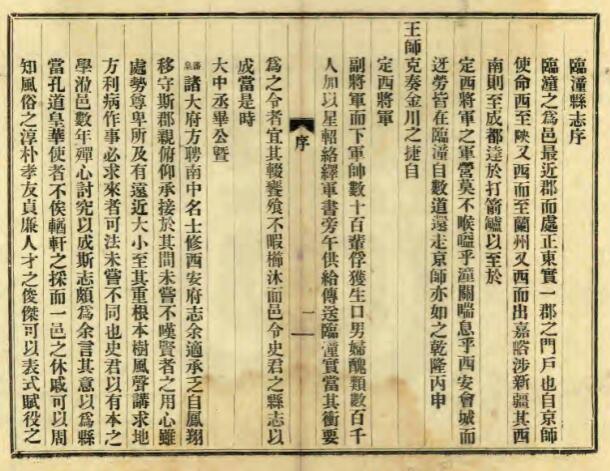 臨潼縣志序
臨潼之為邑最近郡而處正東實一郡之門戶也自京師
使命西至陝又西而至蘭州又西而出嘉峪涉新疆其西
南則至成都達於打箭鑪以至於
定西將軍之軍營莫不喉嗌乎潼關喘息乎西安會城而
迓勞皆在臨潼自數道還走京師亦如之乾隆丙申
王師克奏金川之捷自
定西將軍
副將軍而下軍師數十百輩俘獲生口男婦醜類數百千
人加以星軺絡繹軍書旁午供給傳送臨潼實當其衝要
序
一
為之令者宜其輟饔飧不暇櫛沐而邑令史君之縣志以
成當是時
大中丞畢公暨
藩臬諸大府方聘南中名士修西安府志余適承乏自鳳翔
移守斯郡親俯仰承接於其間未嘗不嘆賢者之用心雖
處勢尊卑所及有遠近大小至其重根本樹風聲講求地
方利病作事必求來者可法未嘗不同也史君以有本之
學涖邑數年殫心討究以成斯志頗為余言其意以為縣
當孔道皇華使者不俟輶軒之採而一邑之休戚可以周
知風俗之淳朴孝友貞廉人才之俊傑可以表式賦役之